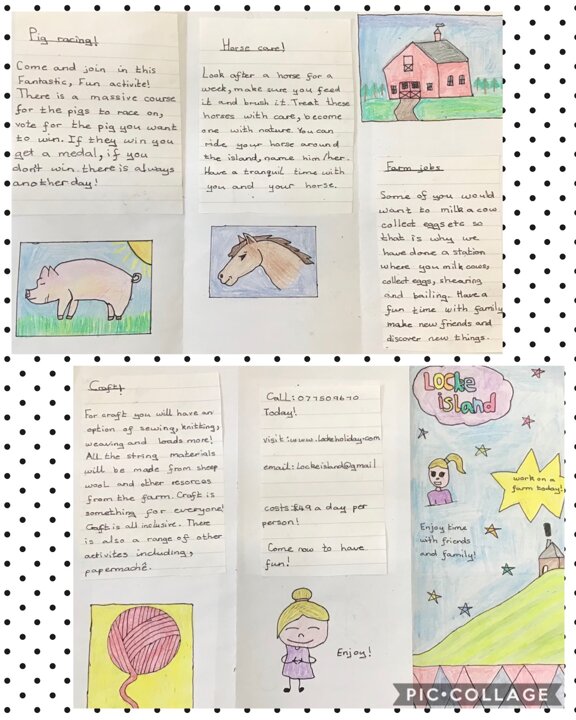 Pig racing!
Come and join in this
Fantastic, Fun activite!
There is a massive course
for the pigs to race on,
vote for the pig you want
to win. If they win you
get a medal, if you
don't win there is always
another day!
Horse care!
Look after a horse for a
week, make sure you feed
it and brush it. Treat these
horses with care, become
one with nature. You can
ride your horse around
the island, name him/her.
Have a tranquil time with
you and your horse.
Farm jobs
Some of you would
want to milk a cow
collect eggs etc so
that is why we
have done a station
where you milk cows,
collect eggs, shearing
and bailing. Have a
fun time with family
make new friends and
discover new things.
Craft!
For craft you will have an
option of sewing, knitting,
weaving and loads more!
All the string materials
will be made from sheep
wool and other resorces
from the farm. Craft is
something for everyone!
Craft is all inclusive. There
is also a range of other
activites including,
papermachê.
Call: 077509670
Today!
visit: www.lockeholiday.com
email: Lockeisland@gmail
costs £49 a day per
person!
Come now to have
fun!
Enjoy!
Locke
island
work on a
farm today!
Enjoy time
with friends
and family!
PIC•COLLAGE